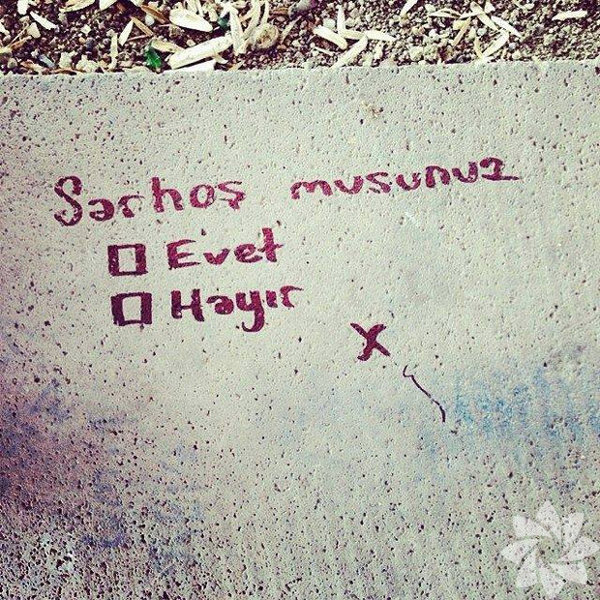 Sarhoş musunuz
☐ Evet
☐ Hayır
X